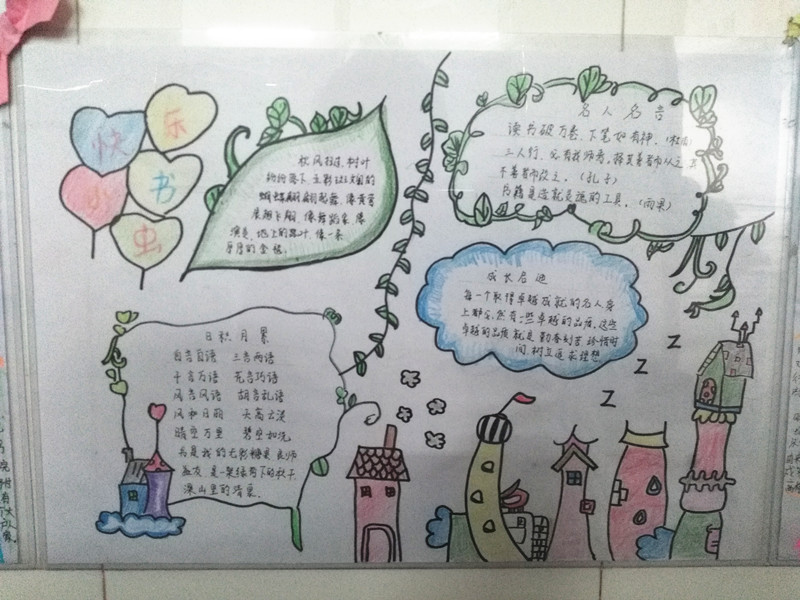 快乐
小书
虫
秋风扫过,树叶
纷纷落下,五彩
蝴蝶翩翩起舞,像黄莺
展翅飞翔,像舞蹈家,
演员,地上的落叶,像一条
厚厚的金毯。
名人名言
读书破万卷,下笔如有神。(杜甫)
三人行,必有我师焉,择其善者而从之,其
不善者而改之。(孔子)
书籍是造就灵魂的工具。(雨果)
成长启迪
每一个取得卓越成就的名人身
上都必然有一些卓越的品质,这些
卓越的品质就是勤奋刻苦 珍惜时
间,树立远大理想
日积月累
自言自语 三言两语
千言万语 花言巧语
风言风语 胡言乱语
风和日丽 天高云淡
晴空万里 碧空如洗
书是我的
是一架
深山里的清泉。
Z
Z
Z